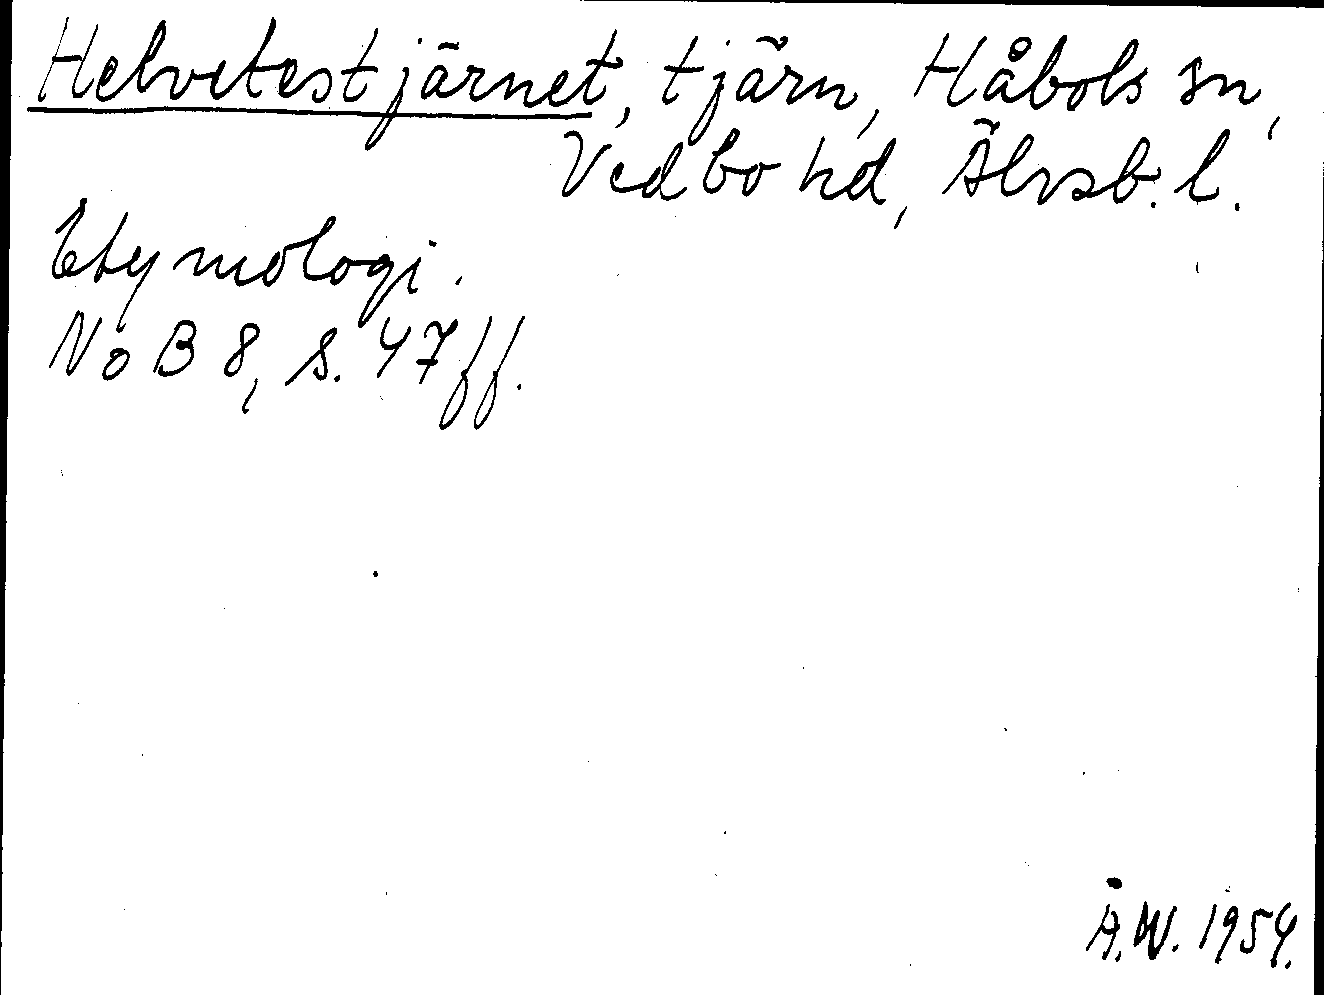 Helvetestjärnet, tjärn, Håbols sn,
Vedbo hd, Älvsb. l.
Etymologi.
NoB 8, s. 47 ff.
Å.W. 1954.